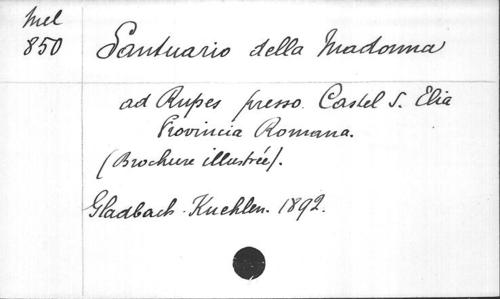 Mel
850
Santuario della Madonna
ad Rupes presso Castel S. Elia
Provincia Romana.
(Brochure illustrée).
Gladbach. Kuehlen. 1892.